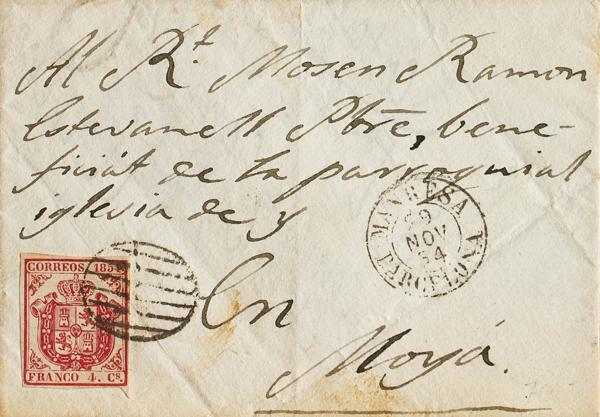 Al R.t Mosen Ramon
Estevanell Pbre, bene-
ficiát de la parroquial
iglesia de y
En
Moyá.
MANRESA
29
NOV
54
BARCELONA
CORREOS 185
FRANCO 4. Cs.